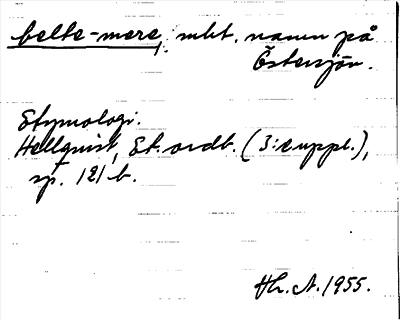 belte-mere, mht. namn på
Östersjön.
Etymologi.
Hellquist, Et. ordb. (3:e uppl.),
sp. 121 b.
Hr. A. 1955.